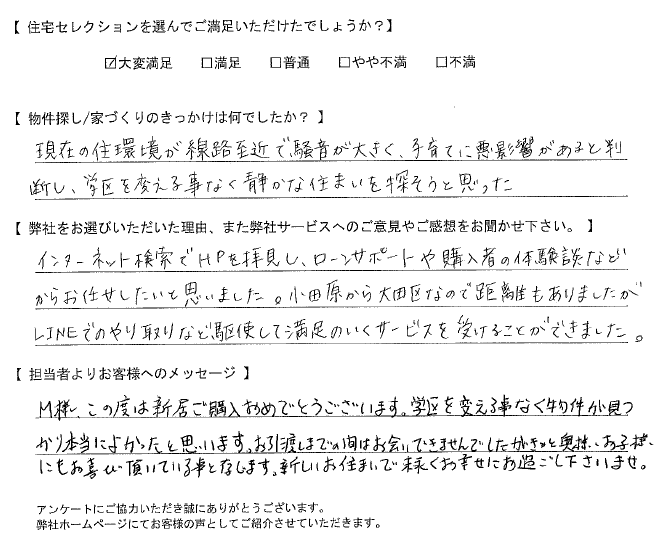 【 住宅セレクションを選んでご満足いただけたでしょうか？】
☑大変満足 □満足 □普通 □やや不満 □不満
【 物件探し/家づくりのきっかけは何でしたか？ 】
現在の住環境が線路至近で騒音が大きく、子育てに悪影響があると判
断し、学区を変える事なく静かな住まいを探そうと思った
【 弊社をお選びいただいた理由、また弊社サービスへのご意見やご感想をお聞かせ下さい。 】
インターネット検索でHPを拝見し、ローンサポートや購入者の体験談など
からお任せしたいと思いました。小田原から大田区なので距離もありましたが
LINEでのやり取りなど駆使して満足のいくサービスを受けることができました。
【 担当者よりお客様へのメッセージ 】
M様、この度は新居ご購入おめでとうございます。学区を変える事なく物件が見つ
かり本当によかったと思います。お引渡しまでの間はお会いできませんでしたがきっと奥様、お子様
にもお喜び頂いている事と存じます。新しいお住まいで末永くお幸せにお過ごし下さいませ。
アンケートにご協力いただき誠にありがとうございます。
弊社ホームページにてお客様の声としてご紹介させていただきます。